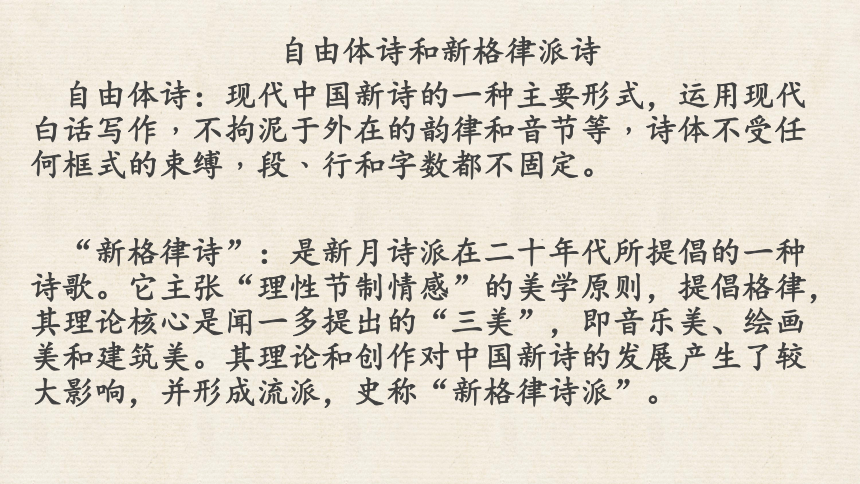 自由体诗和新格律派诗
自由体诗：现代中国新诗的一种主要形式，运用现代
白话写作，不拘泥于外在的韵律和音节等，诗体不受任
何框式的束缚，段、行和字数都不固定。
“新格律诗”：是新月诗派在二十年代所提倡的一种
诗歌。它主张“理性节制情感”的美学原则，提倡格律，
其理论核心是闻一多提出的“三美”，即音乐美、绘画
美和建筑美。其理论和创作对中国新诗的发展产生了较
大影响，并形成流派，史称“新格律诗派”。